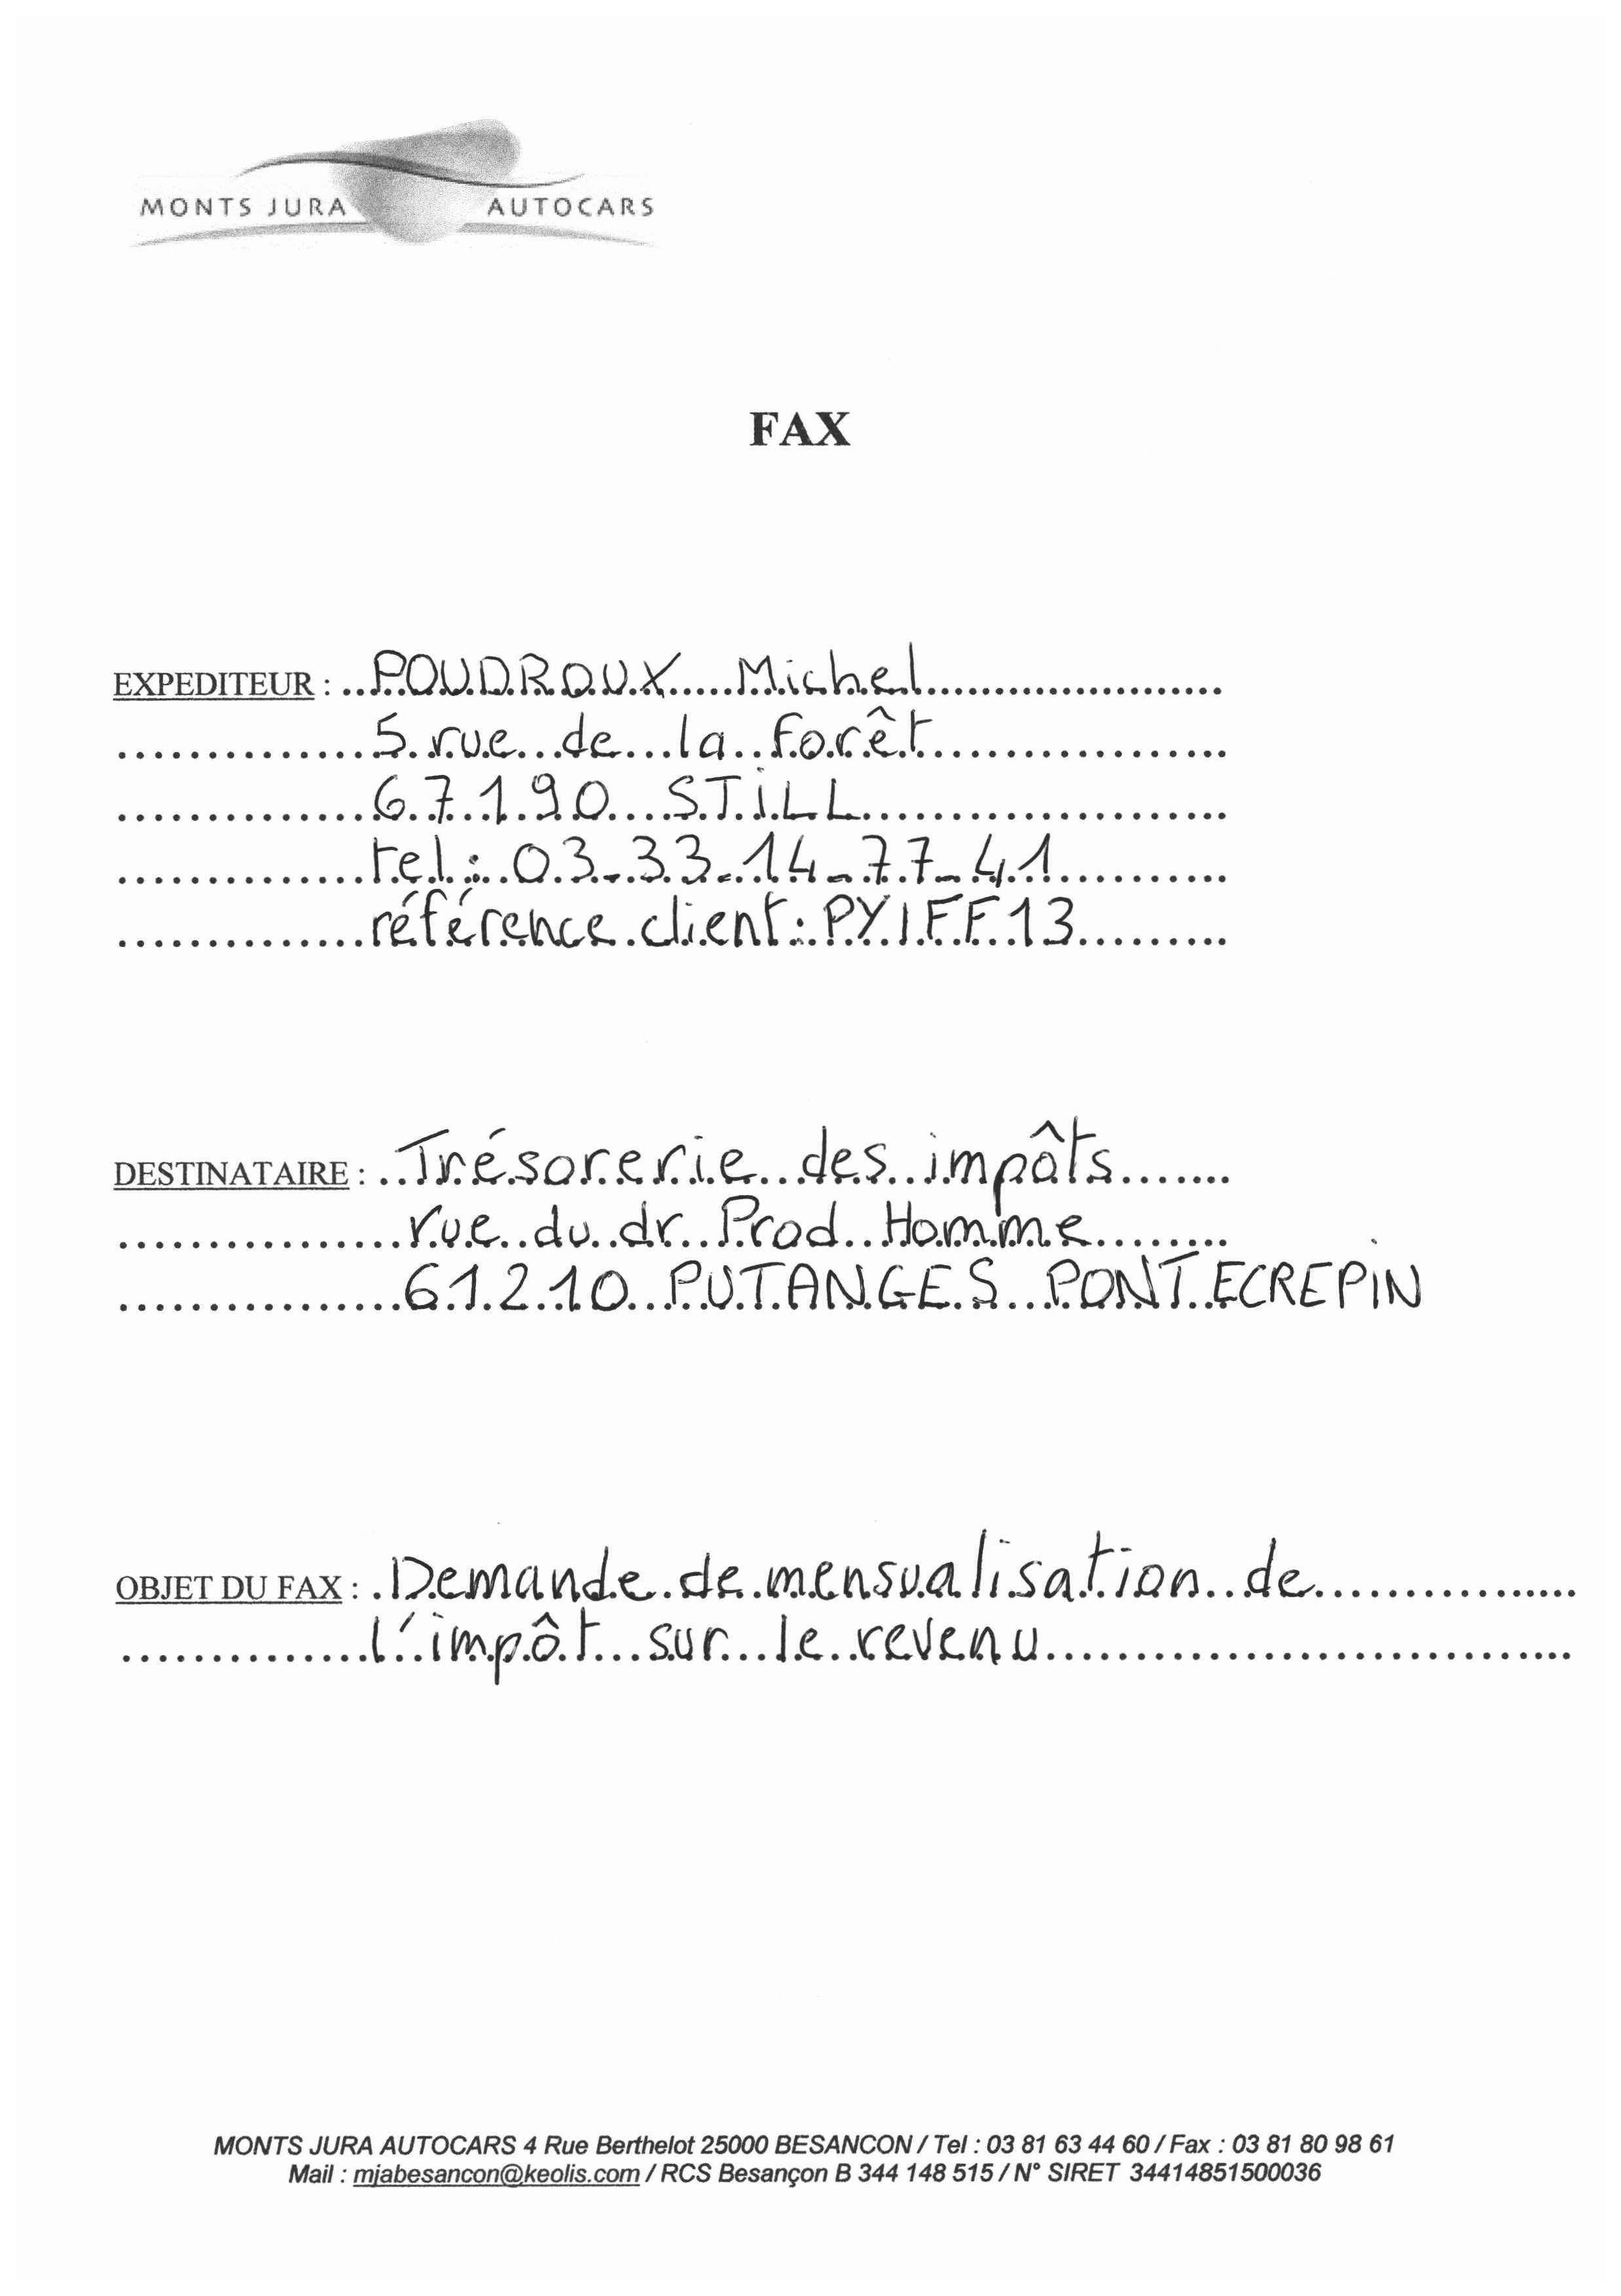 MONTS JURA AUTOCARS
FAX
EXPEDITEUR : POUDROUX Michel
5 rue de la forêt
67190 STILL
tel : 03-33-14-77-41
référence client : PYIFF13
DESTINATAIRE : Trésorerie des impôts
rue du dr Prod Homme
61210 PUTANGES PONT ECREPIN
OBJET DU FAX : Demande de mensualisation de
l'impôt sur le revenu
MONTS JURA AUTOCARS 4 Rue Berthelot 25000 BESANCON / Tel : 03 81 63 44 60 / Fax : 03 81 80 98 61
Mail : mjabesancon@keolis.com / RCS Besançon B 344 148 515 / N° SIRET 34414851500036